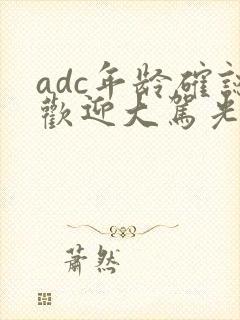 adc年龄確認
歡迎大駕光
萧然